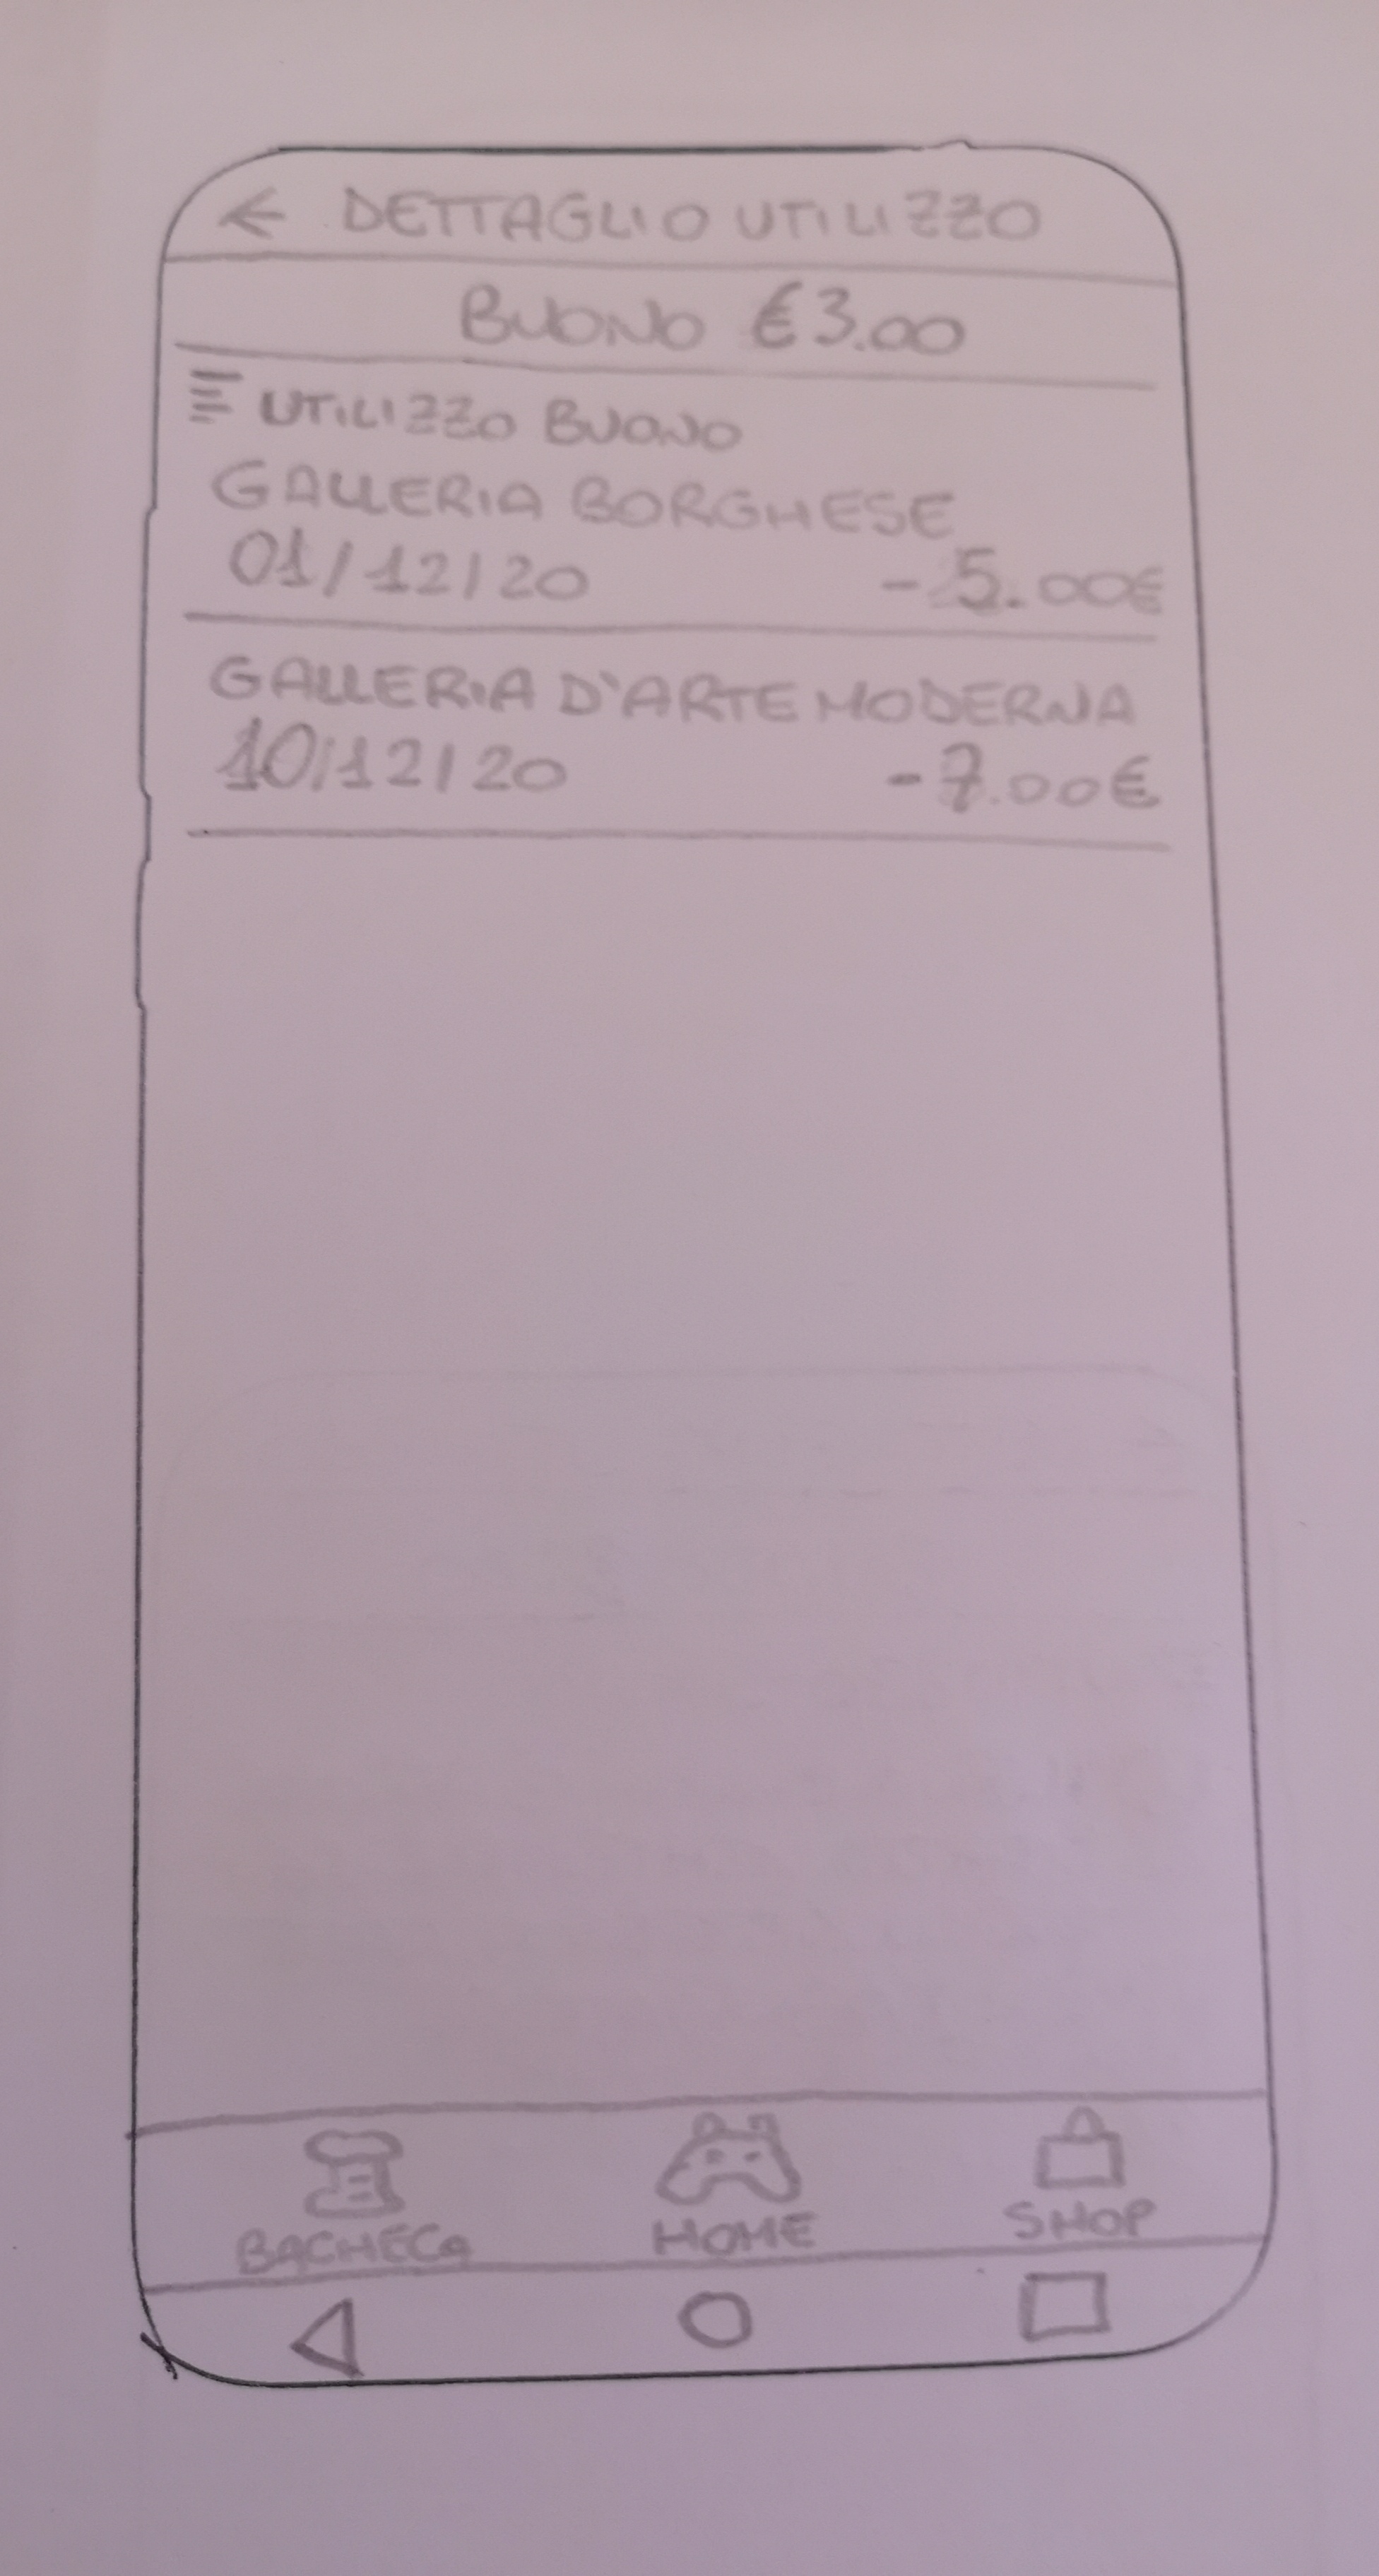 ← DETTAGLIO UTILIZZO
BUONO €3.00
UTILIZZO BUONO
GALLERIA BORGHESE
01/12/20 -5.00€
GALLERIA D'ARTE MODERNA
10/12/20 -7.00€
BACHECA HOME SHOP